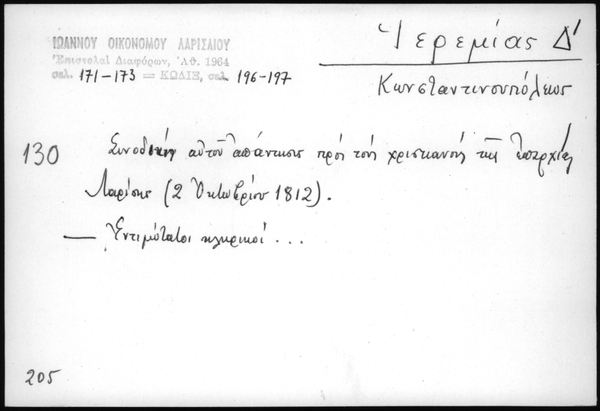 ΙΩΑΝΝΟΥ ΟΙΚΟΝΟΜΟΥ ΛΑΡΙΣΑΙΟΥ
Ἐπιστολαὶ Διαφόρων, Ἀθ. 1964
σελ. 171-173 — ΚΩΔΙΞ, σελ. 196-197
Ἱερεμίας Δ'
Κωνσταντινουπόλεως
130
Συνοδική αὐτοῦ ἀπάντησις πρὸς τοὺς χριστιανοὺς τῆς ἐπαρχίας
Λαρίσης (2 Ὀκτωβρίου 1812).
— Ἐντιμότατοι κληρικοί ...
205